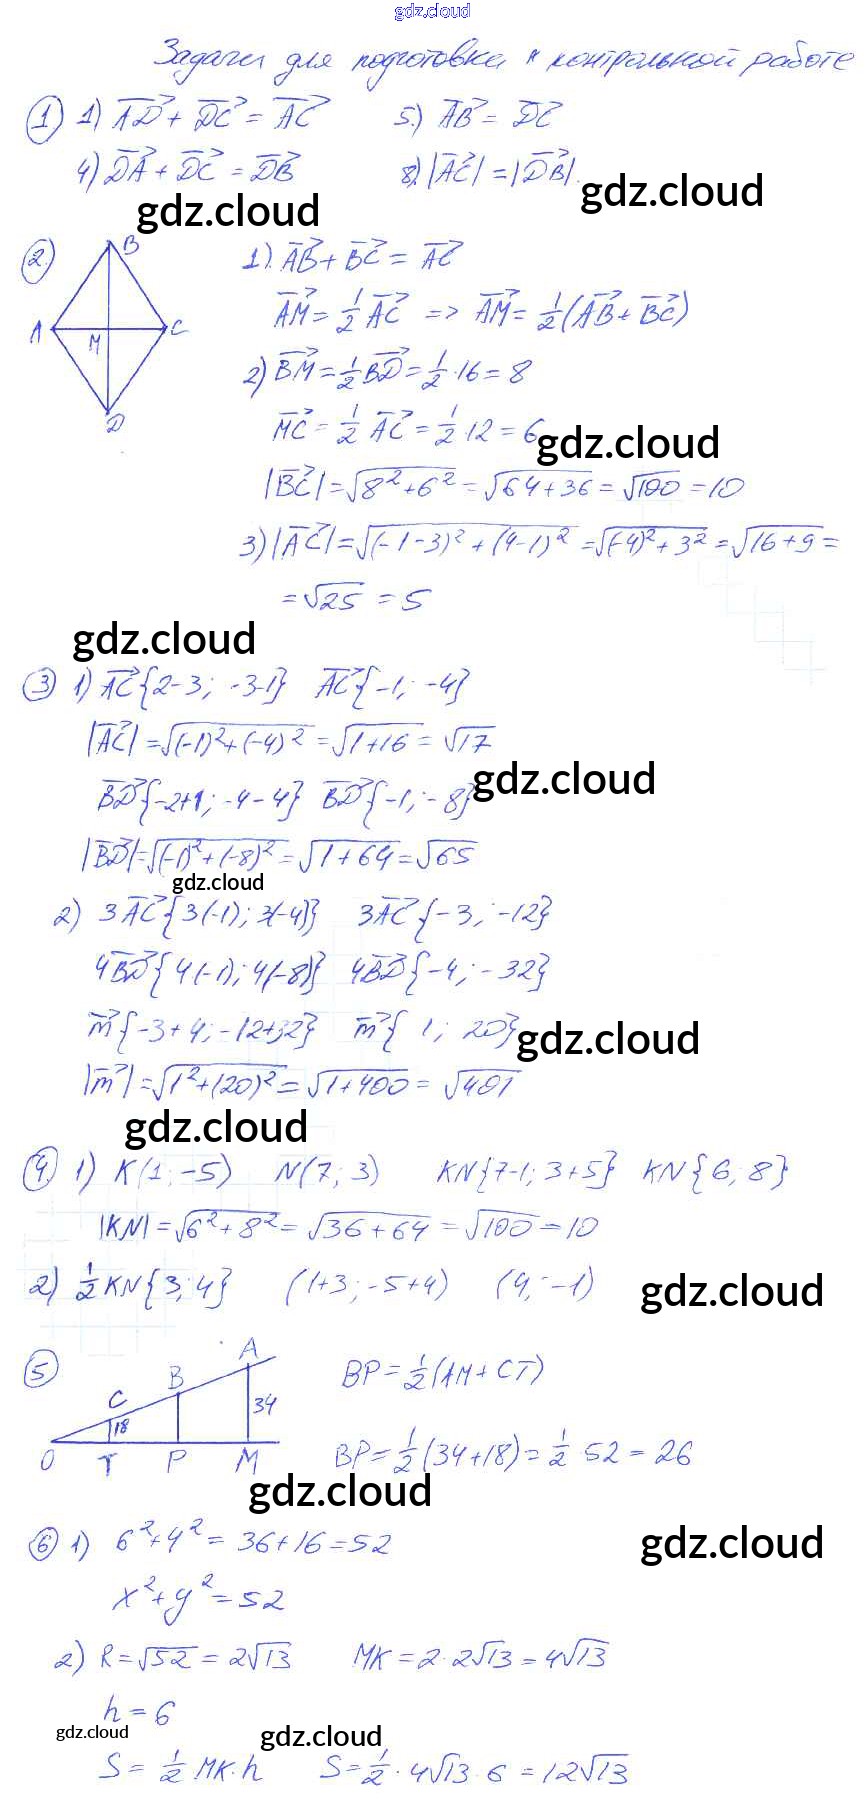 gdz.cloud
Задачи для подготовки к контрольной работе
① 1) AD⃗ + DC⃗ = AC⃗ 5) AB⃗ = DC⃗
4) DA⃗ + DC⃗ = DB⃗ 8) |AC⃗| = |DB⃗|.
gdz.cloud
gdz.cloud
② B A M C D
1). AB⃗ + BC⃗ = AC⃗
AM⃗ = 1/2 AC⃗ => AM⃗ = 1/2 (AB⃗ + BC⃗)
2) BM⃗ = 1/2 BD⃗ = 1/2 · 16 = 8
MC⃗ = 1/2 AC⃗ = 1/2 · 12 = 6
gdz.cloud
|BC⃗| = √8² + 6² = √64 + 36 = √100 = 10
3) |AC⃗| = √(-1-3)² + (4-1)² = √(-4)² + 3² = √16 + 9 =
= √25 = 5
gdz.cloud
③ 1) AC⃗{2-3; -3-1} AC⃗{-1; -4}
|AC⃗| = √(-1)² + (-4)² = √1 + 16 = √17
gdz.cloud
BD⃗{-2+1; -4-4} BD⃗{-1; -8}
|BD⃗| = √(-1)² + (-8)² = √1 + 64 = √65
gdz.cloud
2) 3AC⃗{3(-1); 3(-4)} 3AC⃗{-3; -12}
4BD⃗{4(-1); 4(-8)} 4BD⃗{-4; -32}
m⃗{-3+4; -12+32} m⃗{1; 20}
gdz.cloud
|m⃗| = √1² + (20)² = √1 + 400 = √401
gdz.cloud
④ 1) K(1; -5) N(7; 3) KN{7-1; 3+5} KN{6; 8}
|KN| = √6² + 8² = √36 + 64 = √100 = 10
2) 1/2 KN{3; 4} (1+3; -5+4) (4; -1)
gdz.cloud
⑤ A B C 34 18 O T P M
BP = 1/2 (AM + CT)
BP = 1/2 (34 + 18) = 1/2 · 52 = 26
gdz.cloud
gdz.cloud
⑥ 1) 6² + 4² = 36 + 16 = 52
x² + y² = 52
2) R = √52 = 2√13 MK = 2 · 2√13 = 4√13
h = 6
gdz.cloud
gdz.cloud
S = 1/2 MK · h S = 1/2 · 4√13 · 6 = 12√13